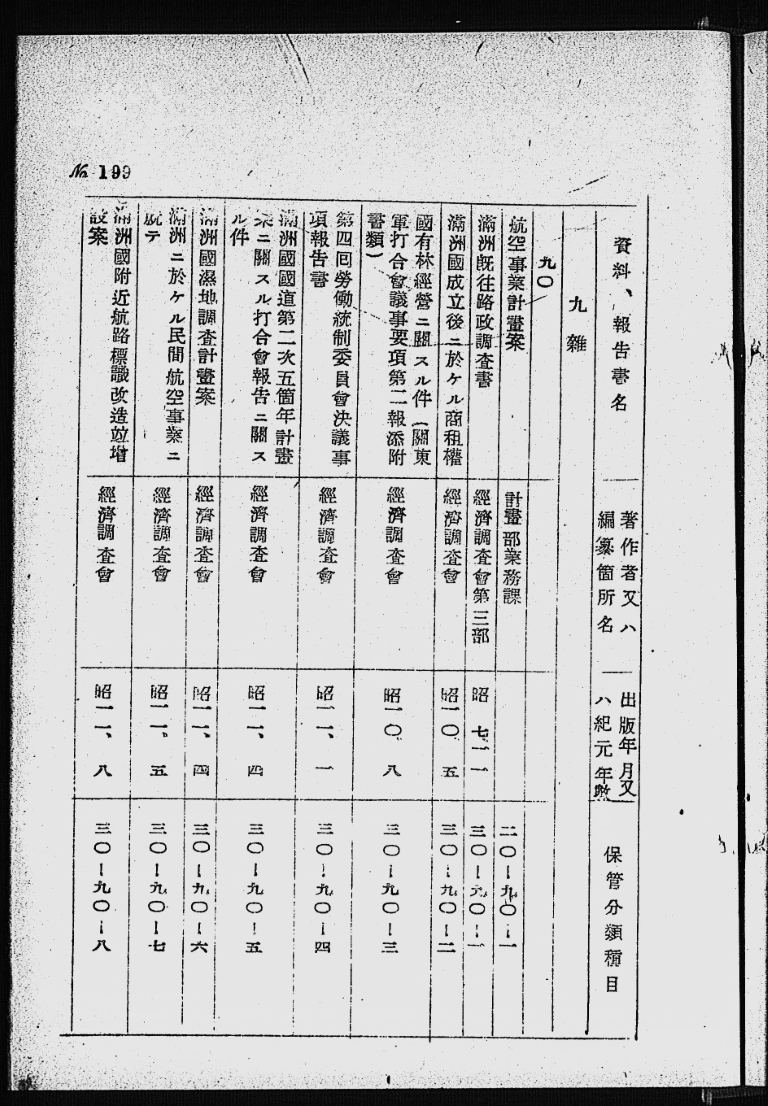 No. 199
資料、報告書名
著作者又ハ
編纂箇所名
出版年月又
ハ紀元年數
保管分類種目
九雜
九〇
航空事業計畫案
計畫部業務課
二〇—九〇—一
滿洲既往路政調査書
經濟調査會第三部
昭 七、一一
三〇—九〇—一
滿洲國成立後ニ於ケル商租權
經濟調査會
昭一〇、五
三〇—九〇—二
國有林經營ニ關スル件(關東
軍打合會議事要項第二報添附
書類)
經濟調査會
昭一〇、八
三〇—九〇—三
第四回勞働統制委員會決議事
項報告書
經濟調査會
昭一一、一
三〇—九〇—四
滿洲國國道第二次五箇年計畫
案ニ關スル打合會報告ニ關ス
ル件
經濟調査會
昭一一、四
三〇—九〇—五
滿洲國濕地調査計畫案
經濟調査會
昭一一、四
三〇—九〇—六
滿洲ニ於ケル民間航空事業ニ
就テ
經濟調査會
昭一一、五
三〇—九〇—七
滿洲國附近航路標識改造竝增
設案
經濟調査會
昭一一、八
三〇—九〇—八